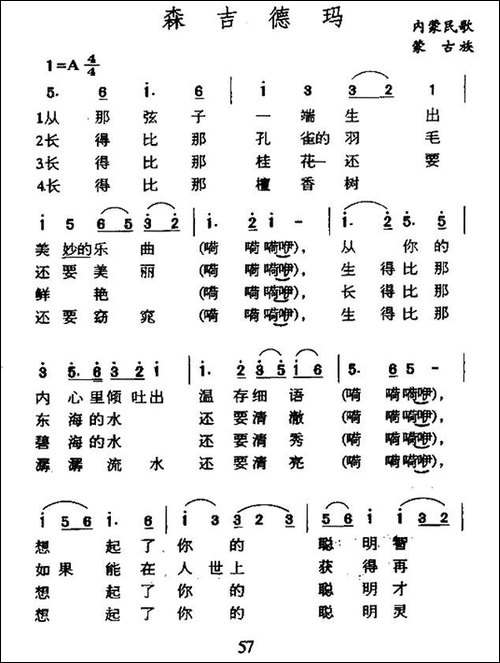 森吉德玛
内蒙民歌
1=A 4/4
蒙古族
5. 6 i. 6 | i 3 3 2 1
1从那弦子一端生出
2长得比那孔雀的羽毛
3长得比那桂花一还要
4长得比那檀香树
i 5 6 5 3 2 | i. 2 i - | i. 2 5. 5
美妙的乐曲 (嗬嗬嗬咿), 从你的
还要美丽 (嗬嗬嗬咿), 生得比那
鲜艳 (嗬嗬嗬咿), 长得比那
还要窈窕 (嗬嗬嗬咿), 生得比那
3 5. 6 3 2 i | i. 2 3 5 i 6 | 5. 6 5 -
内心里倾吐出 温存细语 (嗬嗬嗬咿),
东海的水 还要清澈 (嗬嗬嗬咿),
碧海的水 还要清秀 (嗬嗬嗬咿),
潺潺流水 还要清亮 (嗬嗬嗬咿),
i 5 6 i. 6 | i 3 3 2 3 | 5 6 i i
想起了你的聪明智
如果能在人世上获得再
想起了你的聪明才
想起了你的聪明灵
57